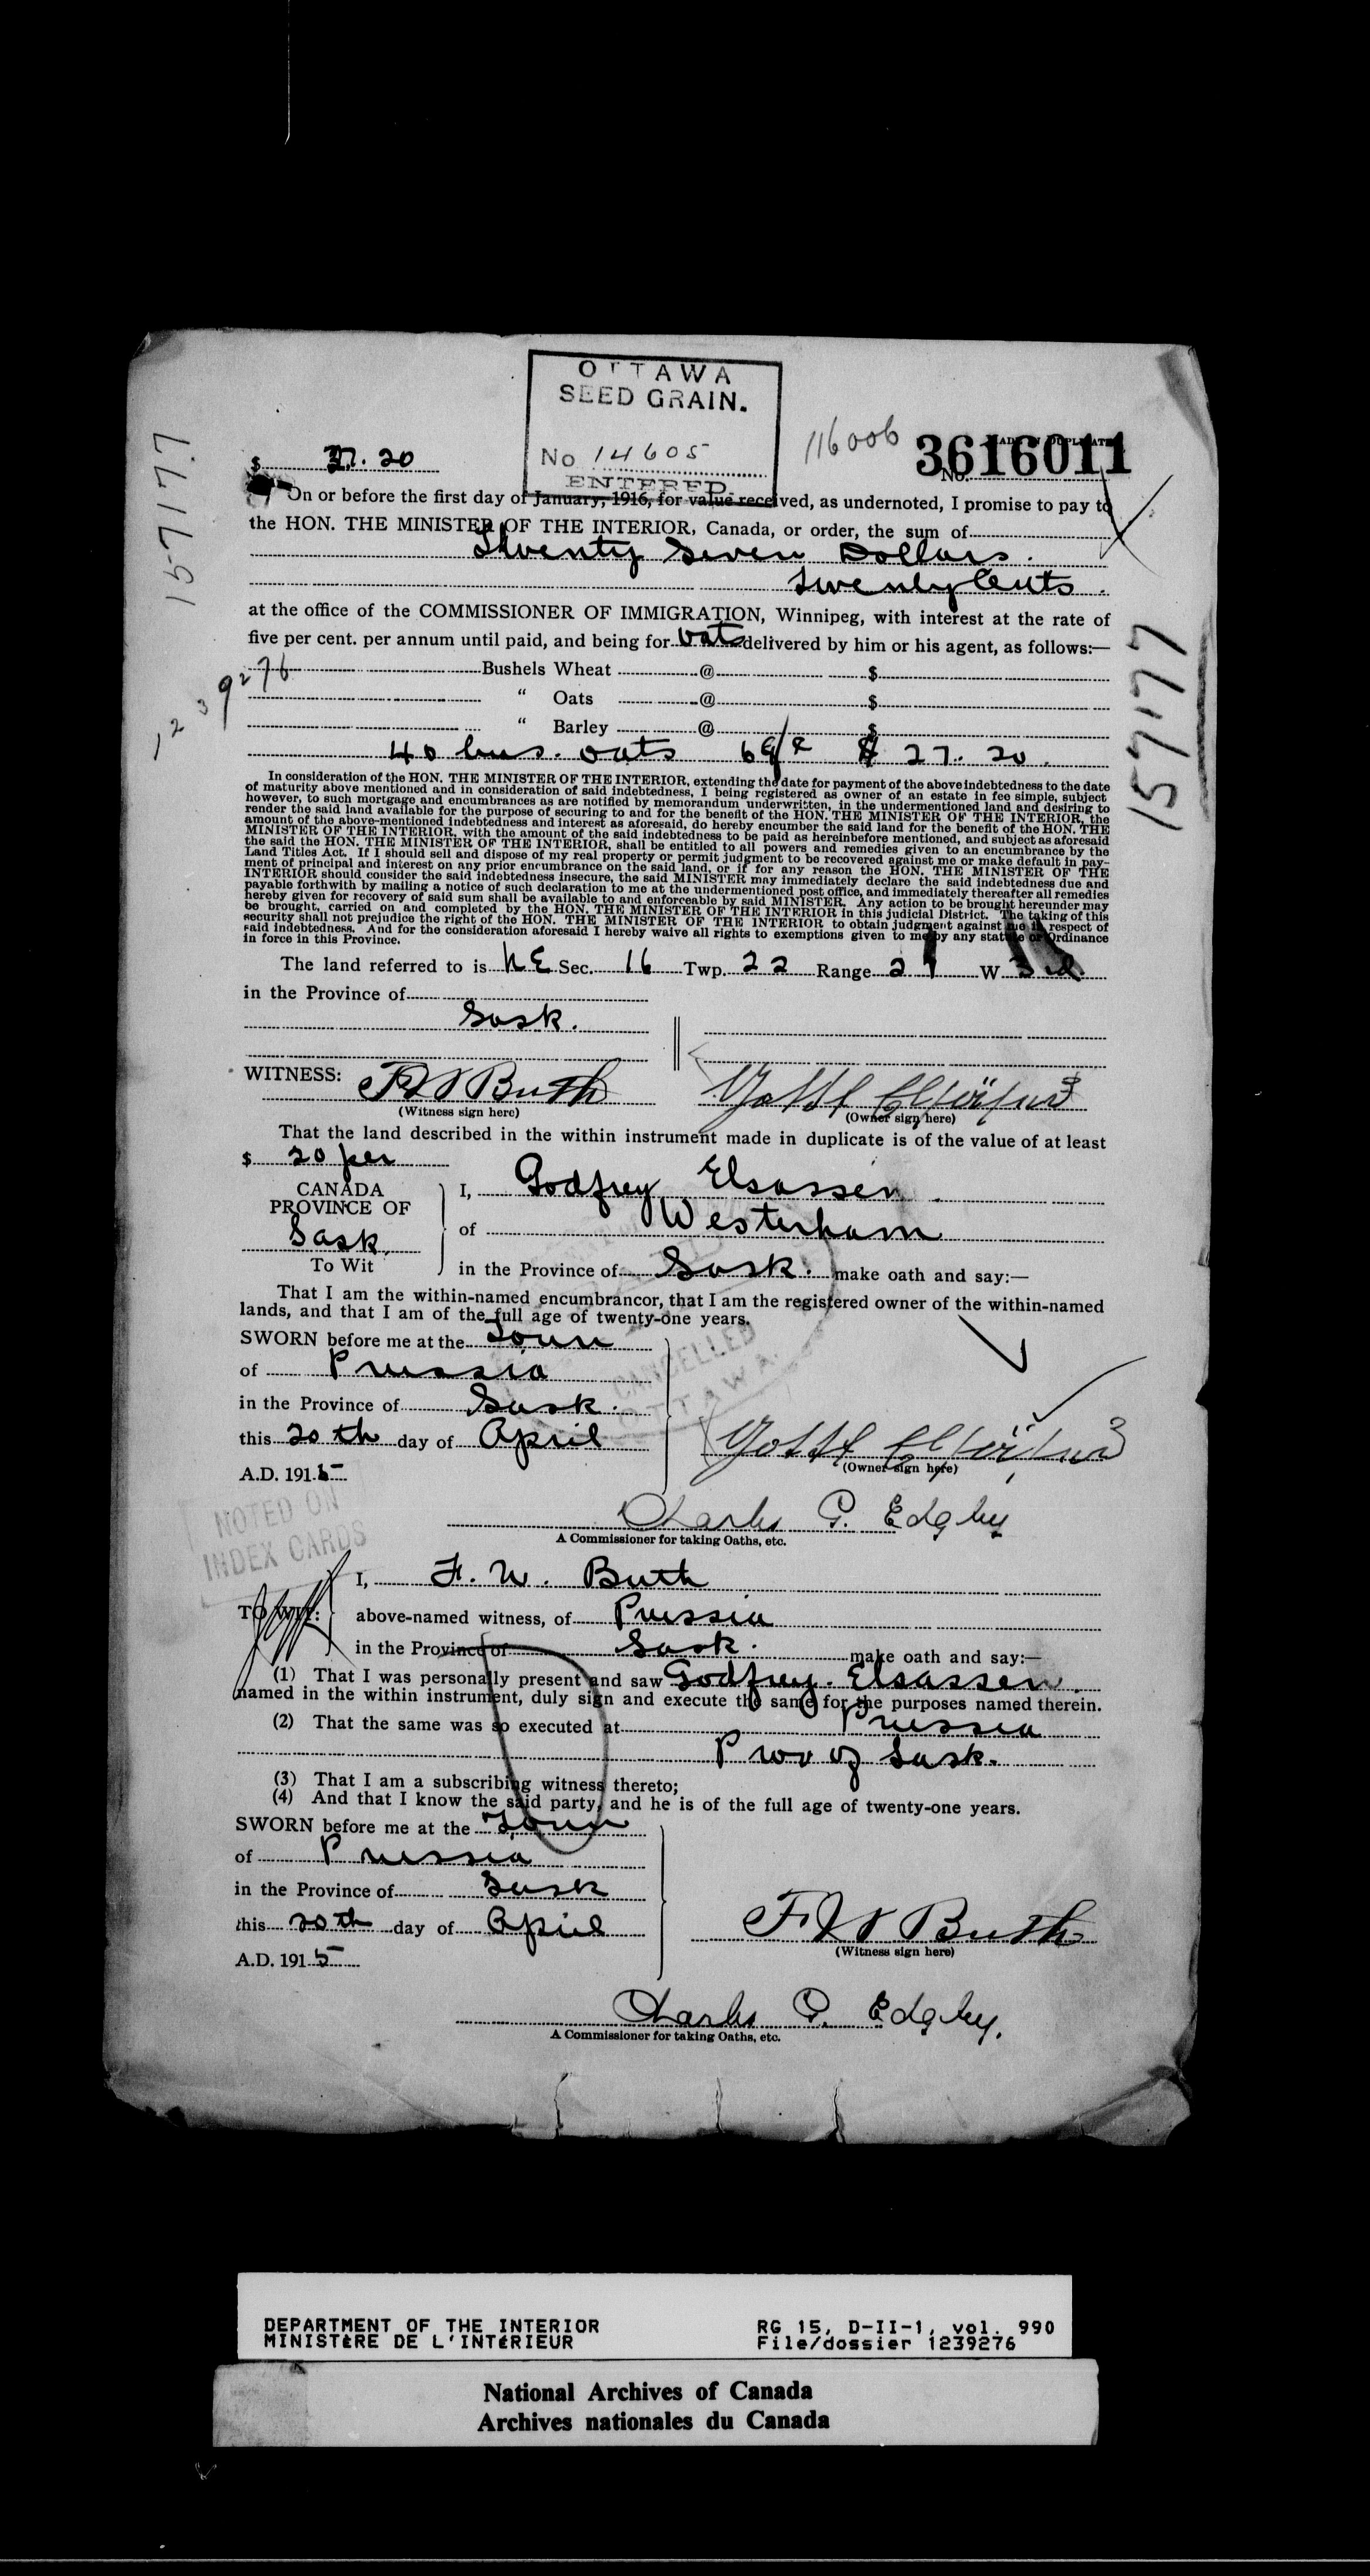 OTTAWA
SEED GRAIN.
No 14605
ENTERED
116006
3616011
No.
$ 27.20
157177
On or before the first day of January, 1916, for value received, as undernoted, I promise to pay to
the HON. THE MINISTER OF THE INTERIOR, Canada, or order, the sum of
Twenty Seven Dollars.
Twenty Cents.
at the office of the COMMISSIONER OF IMMIGRATION, Winnipeg, with interest at the rate of
five per cent. per annum until paid, and being for oats delivered by him or his agent, as follows:—
1239276
157177
Bushels Wheat @ $
“ Oats @ $
“ Barley @ $
40 bus. oats 68¢ $ 27.20.
In consideration of the HON. THE MINISTER OF THE INTERIOR, extending the date for payment of the above indebtedness to the date
of maturity above mentioned and in consideration of said indebtedness, I being registered as owner of an estate in fee simple, subject
however, to such mortgage and encumbrances as are notified by memorandum underwritten, in the undermentioned land and desiring to
render the said land available for the purpose of securing to and for the benefit of the HON. THE MINISTER OF THE INTERIOR, the
amount of the above-mentioned indebtedness and interest as aforesaid, do hereby encumber the said land for the benefit of the HON. THE
MINISTER OF THE INTERIOR, with the amount of the said indebtedness to be paid as hereinbefore mentioned, and subject as aforesaid
the said the HON. THE MINISTER OF THE INTERIOR, shall be entitled to all powers and remedies given to an encumbrance by the
Land Titles Act. If I should sell and dispose of my real property or permit judgment to be recovered against me or make default in pay-
ment of principal and interest on any prior encumbrance on the said land, or if for any reason the HON. THE MINISTER OF THE
INTERIOR should consider the said indebtedness insecure, the said MINISTER may immediately declare the said indebtedness due and
payable forthwith by mailing a notice of such declaration to me at the undermentioned post office, and immediately thereafter all remedies
hereby given for recovery of said sum shall be available to and enforceable by said MINISTER. Any action to be brought hereunder may
be brought, carried on and completed by the HON. THE MINISTER OF THE INTERIOR in this judicial District. The taking of this
security shall not prejudice the right of the HON. THE MINISTER OF THE INTERIOR to obtain judgment against me in respect of
said indebtedness. And for the consideration aforesaid I hereby waive all rights to exemptions given to me by any statute or Ordinance
in force in this Province.
The land referred to is NE Sec. 16 Twp. 22 Range 21 W 3rd
in the Province of
Sask.
WITNESS: F W Buth
(Witness sign here) (Owner sign here)
That the land described in the within instrument made in duplicate is of the value of at least
$ 20 per
CANADA
PROVINCE OF
Sask.
To Wit
I, Godfrey Elsassen.
of Westerham
in the Province of Sask. make oath and say:—
That I am the within-named encumbrancor, that I am the registered owner of the within-named
lands, and that I am of the full age of twenty-one years.
SWORN before me at the Town
of Prussia
in the Province of Sask.
this 20th day of April
A.D. 1915
CANCELLED
OTTAWA
(Owner sign here)
NOTED ON
INDEX CARDS
Charles P. Edgley
A Commissioner for taking Oaths, etc.
TO WIT:
I, F. W. Buth
above-named witness, of Prussia
in the Province of Sask. make oath and say:—
(1) That I was personally present and saw Godfrey. Elsassen.
named in the within instrument, duly sign and execute the same for the purposes named therein.
(2) That the same was so executed at Prussia
Prov of Sask.
(3) That I am a subscribing witness thereto;
(4) And that I know the said party, and he is of the full age of twenty-one years.
SWORN before me at the Town
of Prussia
in the Province of Sask
this 20th day of April
A.D. 1915
F W Buth
(Witness sign here)
Charles P. Edgley.
A Commissioner for taking Oaths, etc.
DEPARTMENT OF THE INTERIOR
MINISTÈRE DE L'INTÉRIEUR
RG 15, D-II-1, vol. 990
File/dossier 1239276
National Archives of Canada
Archives nationales du Canada